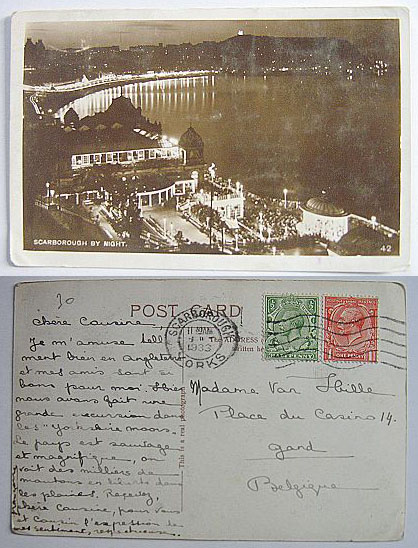 SCARBOROUGH BY NIGHT.
42
30
POST CARD
SCARBOROUGH
1933
YORKS
HALFPENNY
ONE PENNY
The ADDRESS
written he
This is a real photograph
Chère Cousine,
Je m'amuse telle
ment bien en angleterre
et mes amis sont si
bons pour moi. Hier
nous avons fait une
grande excursion dans
les "Yorkshire moors.
Le pays est sauvage
et magnifique, on
voit des milliers de
moutons en liberté dans
les plaines. Recevez,
chère Cousine, pour vous
et Cousin l'expression de
mes sentiments respectueux.
Madame Van Hille
Place du Casino 14.
Gand
Belgique